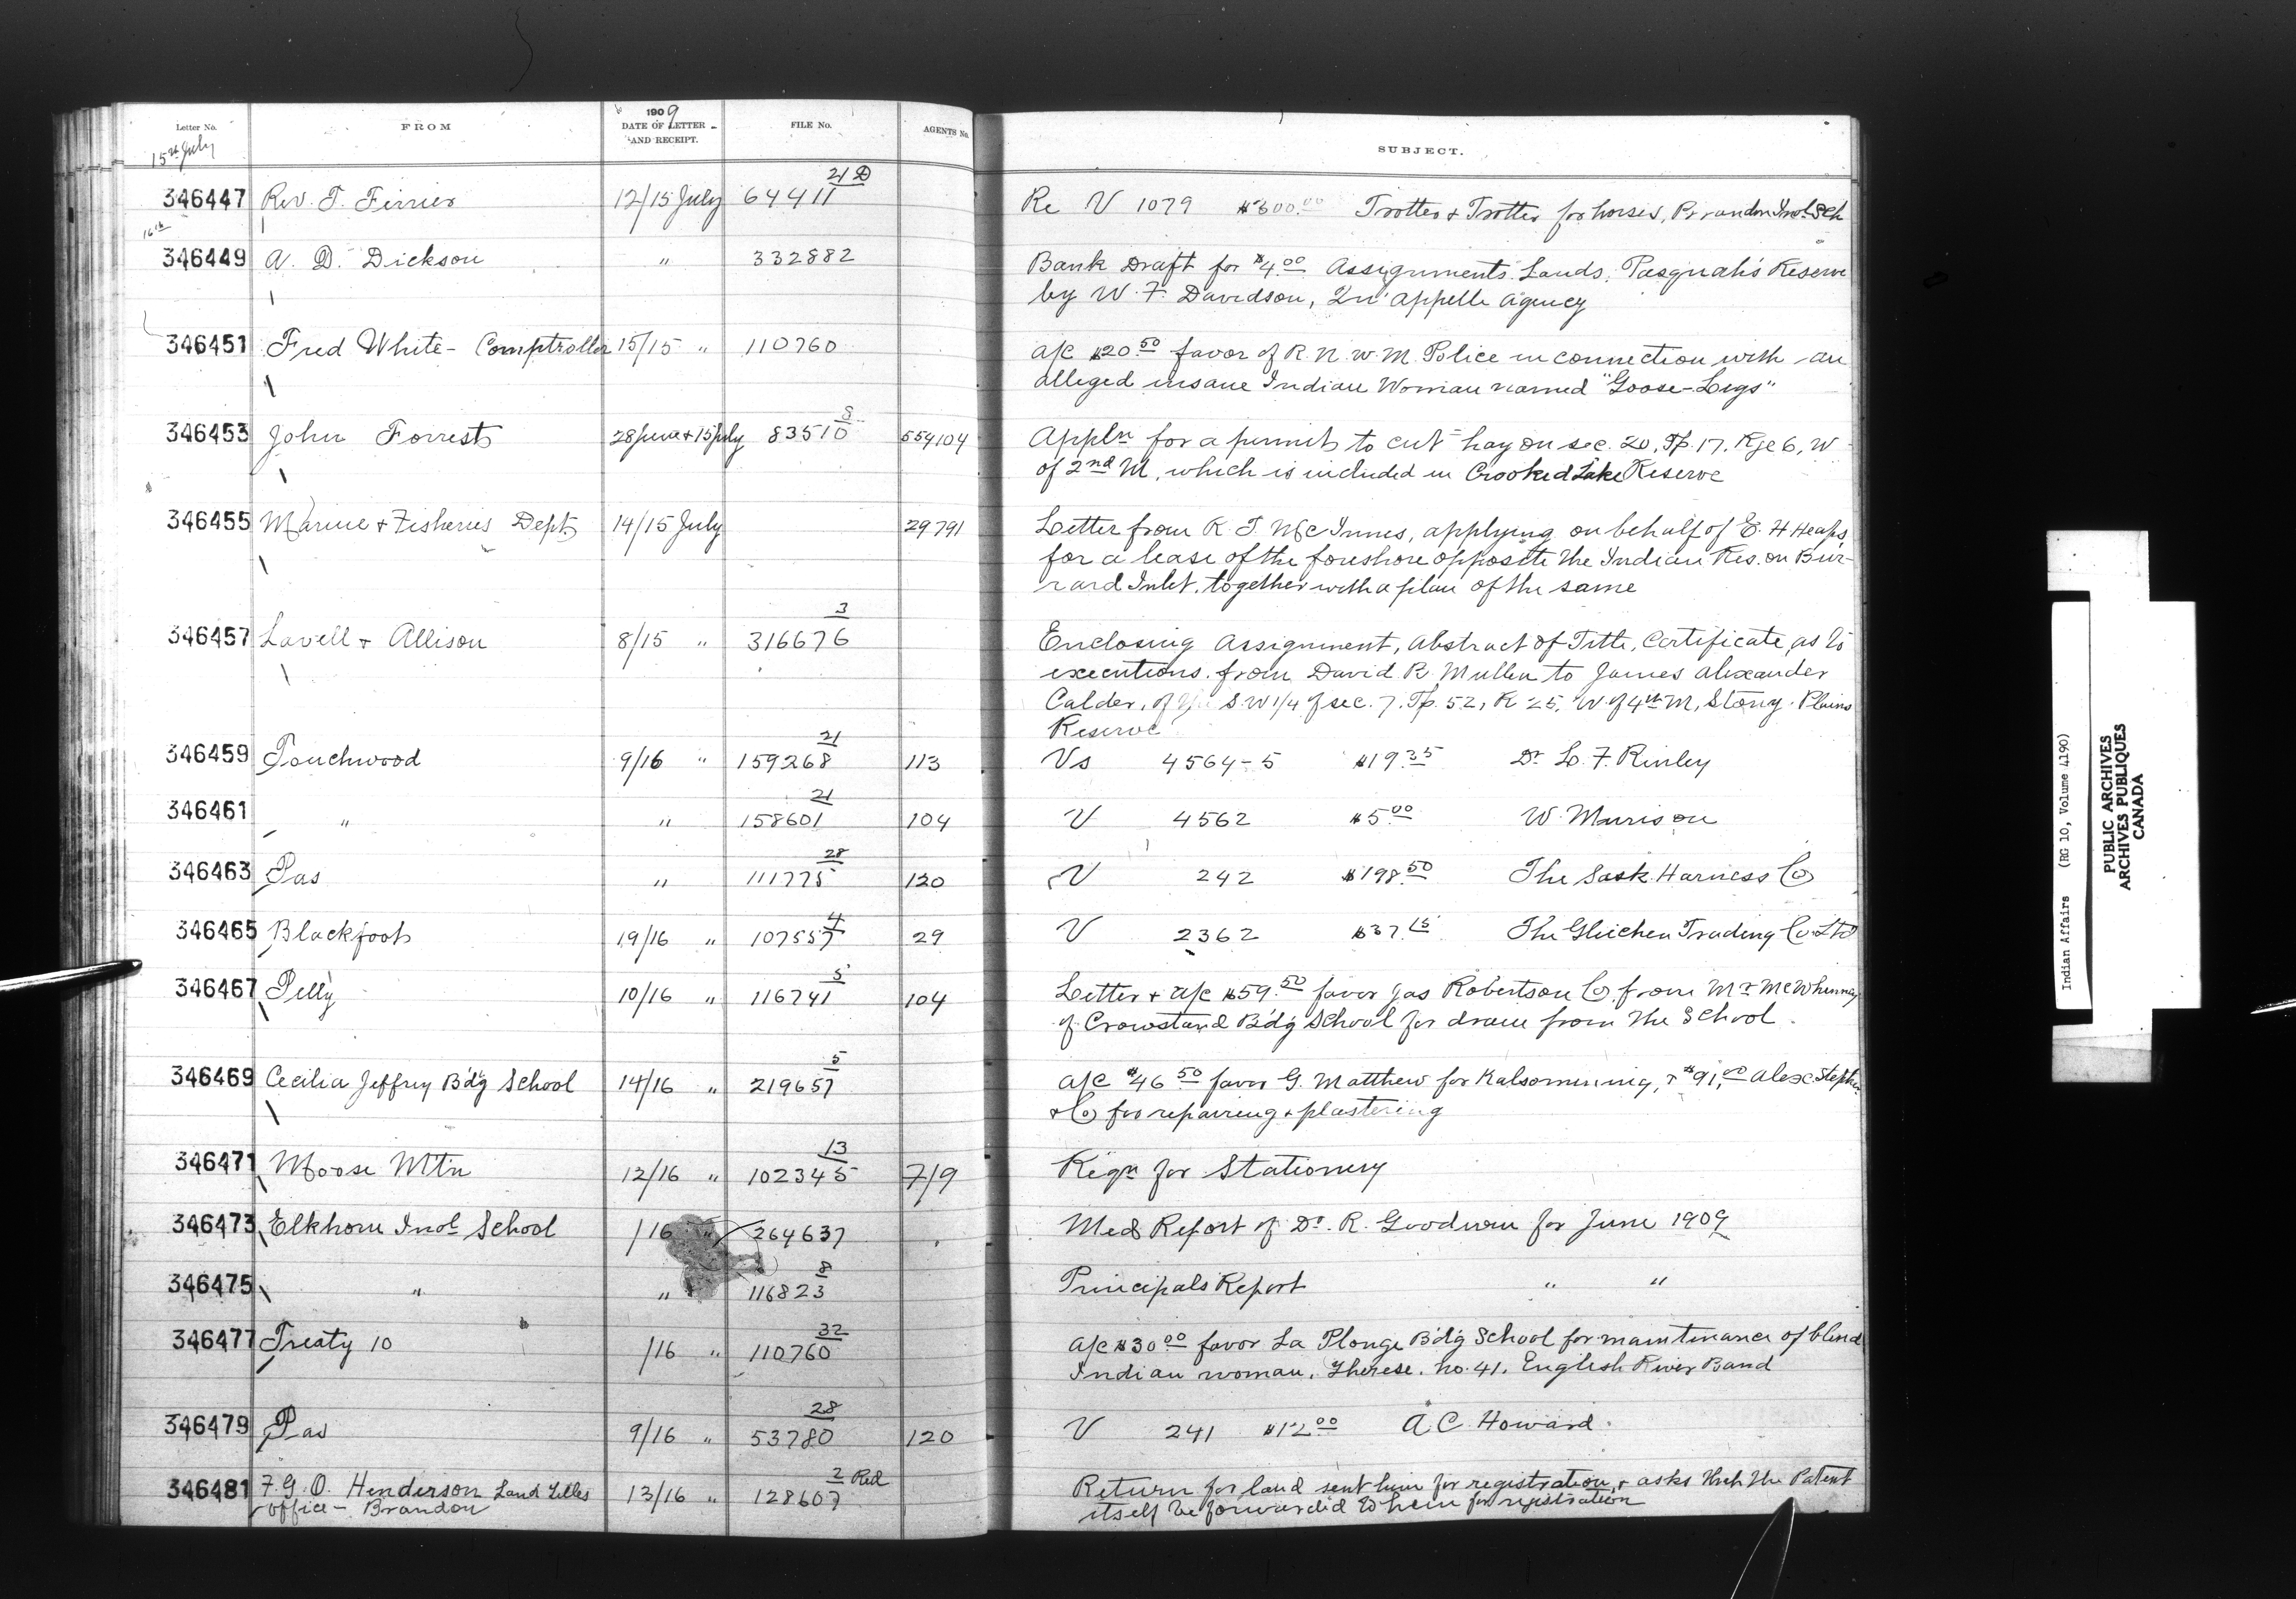 Letter No.
FROM
1909
DATE OF LETTER
AND RECEIPT.
FILE No.
AGENTS No.
SUBJECT.
15th July
21 D
346447 Rev. T. Ferrier 12/15 July 64411 Re V 1079 $600.00 Trotter & Trotter for horses, Brandon Indl Sch
16th
346449 A. D. Dickson " 332882 Bank Draft for $4.00 Assignments Lands, Pasquah's Reserve
by W. F. Davidson, Qu'appelle Agency
346451 Fred White - Comptroller 15/15 " 110760 a/c $20.50 favor of R. N. W. M. Police in connection with an
alleged insane Indian Woman named "Goose-Legs"
8
346453 John Forrest 28 June & 15 July 83510 554104 Appln for a permit to cut hay on sec. 20, Tp. 17, Rge 6, W
of 2nd M, which is included in Crooked Lake Reserve
346455 Marine & Fisheries Dept. 14/15 July 29791 Letter from R. T. McInnes, applying on behalf of E. H Heaps,
for a lease of the foreshore opposite the Indian Res. on Bur-
rard Inlet, together with a plan of the same
3
346457 Lavell & Allison 8/15 " 316676 Enclosing Assignment, Abstract of Title, Certificate, as to
executions, from David R. Mullen to James Alexander
Calder, of S.W 1/4 of sec. 7, Tp. 52, R 25, W. of 4th M, Stony Plains
Reserve
21
346459 Touchwood 9/16 " 159268 113 Vs 4564-5 $19.35 Dr L. F. Rinley
21
346461 " " 158601 104 V 4562 $5.00 W. Murison
28
346463 Pas " 111775 120 V 242 $198.50 The Sask. Harness Co
4
346465 Blackfoot 19/16 " 107557 29 V 2362 $37.15 The Gleichen Trading Co. Ltd
5
346467 Pelly 10/16 " 116741 104 Letter & a/c $59.50 favor Jas Robertson Co from Mr McWhinney
of Crowstand B'd'g School for drain from the School.
5
346469 Cecilia Jeffrey B'd'g School 14/16 " 219657 a/c $46.50 favor G. Matthew for Kalsomining, & $91.00 Alex Stephen
& Co for repairing & plastering
13
346471 Moose Mtn 12/16 " 102345 7/9 Reqn for Stationery
346473 Elkhorn Indl School /16 " 264637 Med Report of Dr. R. Goodwin for June 1909
8
346475 " " 116823 Principals Report " "
32
346477 Treaty 10 /16 " 110760 a/c $30.00 favor La Plonge B'd'g School for maintenance of blind
Indian woman, Therese, No. 41, English River Band
28
346479 Pas 9/16 " 53780 120 V 241 $12.00 A. C. Howard.
2 Red
346481 F. G. O. Henderson Land Titles 13/16 " 128607 Return for land sent him for registration, & asks that the Patent
office - Brandon itself be forwarded to him for registration
Indian Affairs (RG 10, Volume 4190)
PUBLIC ARCHIVES
ARCHIVES PUBLIQUES
CANADA